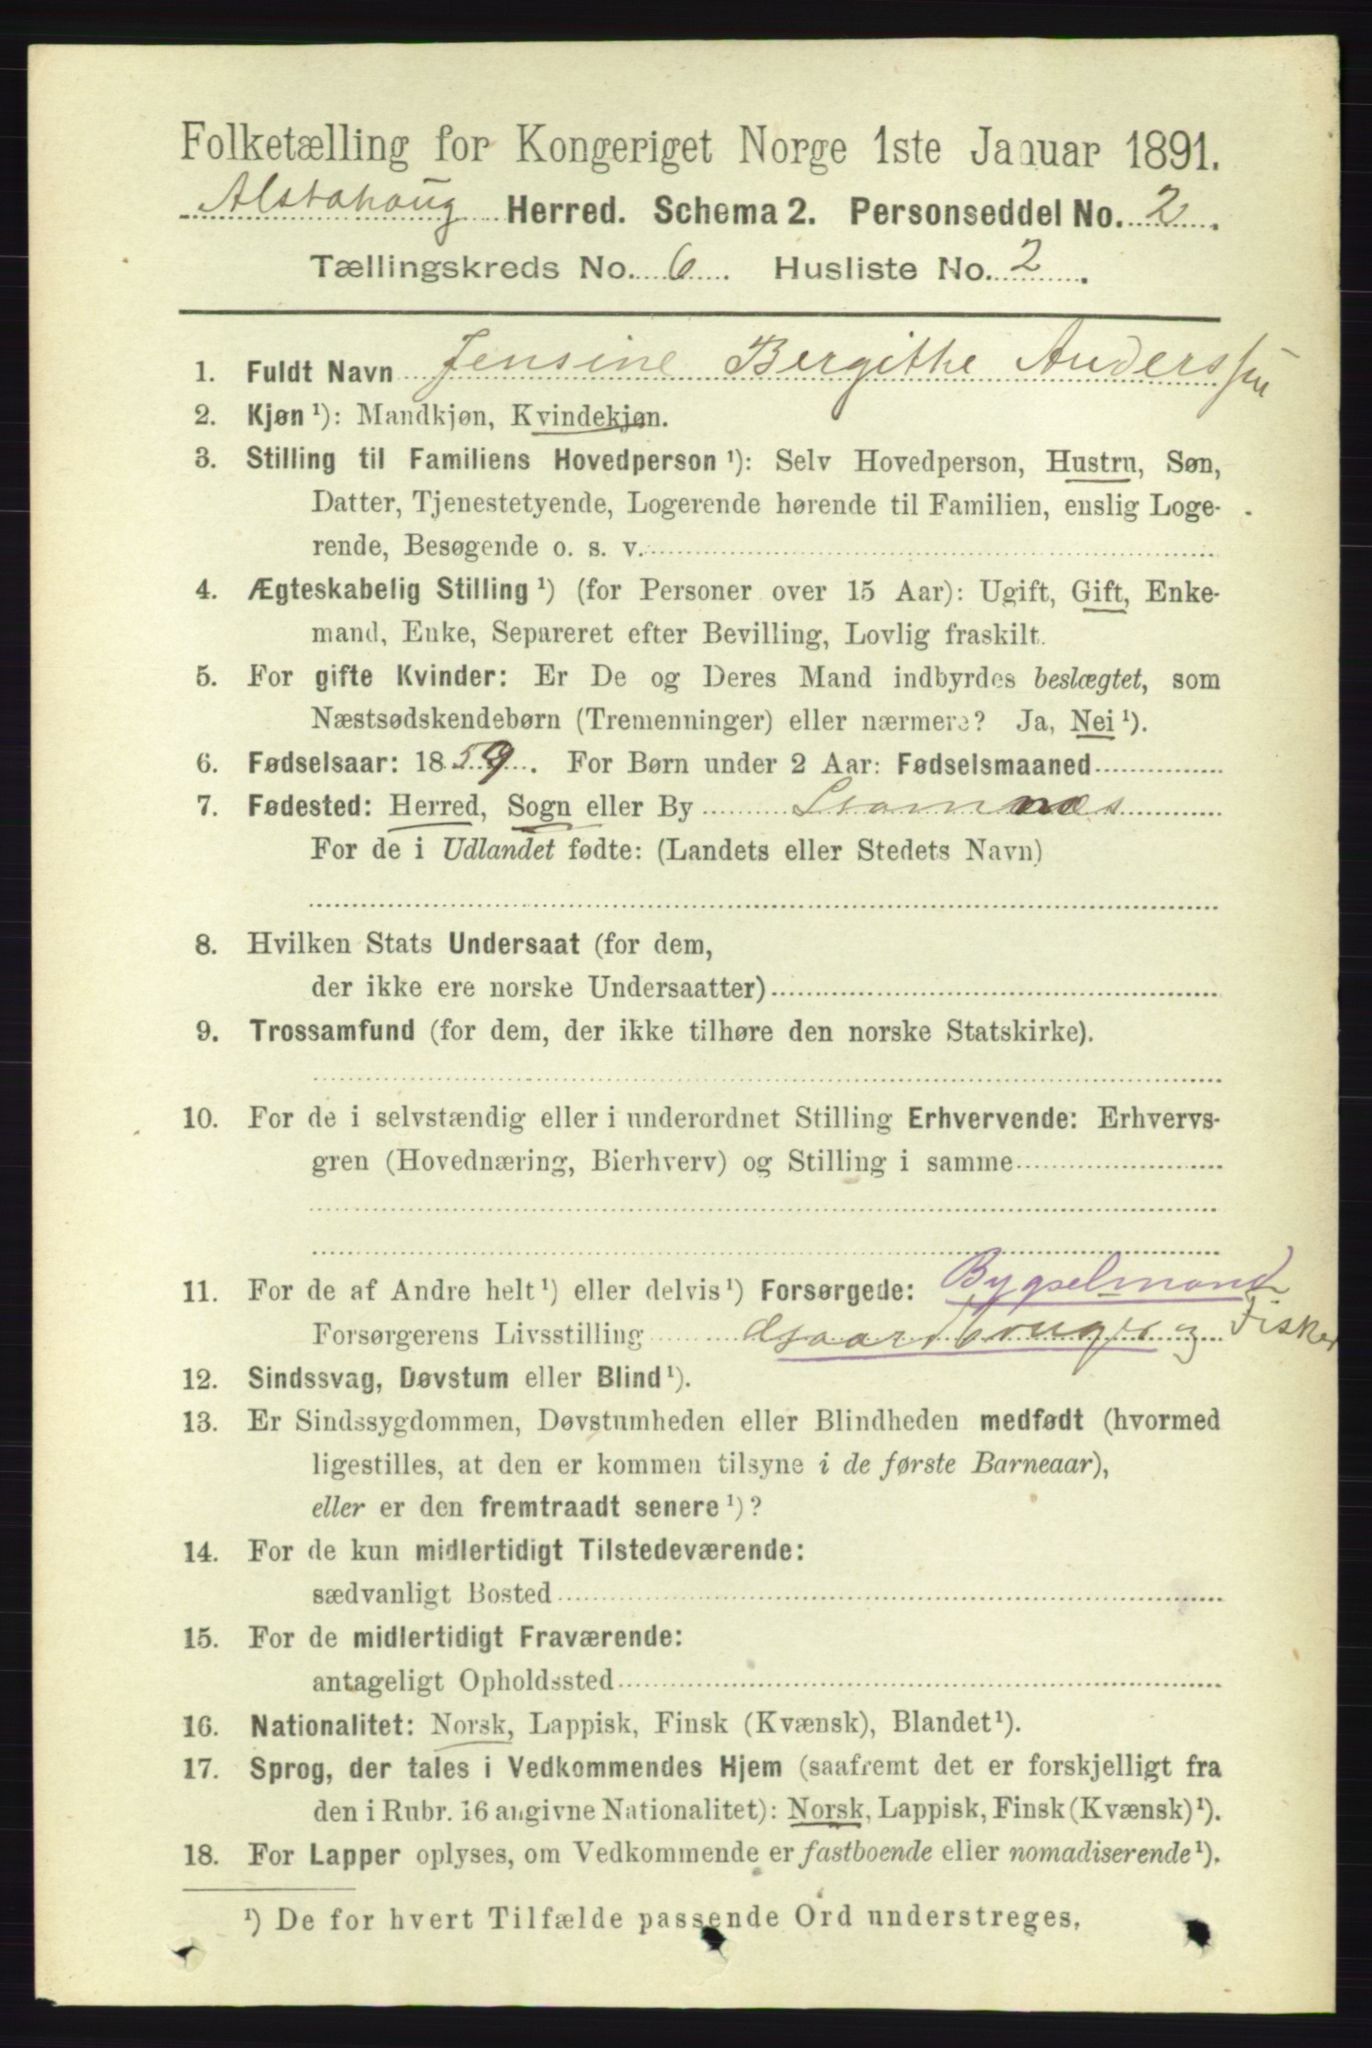 Folketælling for Kongeriget Norge 1ste Januar 1891.
Alstahoug Herred. Schema 2. Personseddel No. 2.
Tællingskreds No. 6. Husliste No. 2.
1. Fuldt Navn Jensine Bergithe Anderssen
2. Kjøn ¹): Mandkjøn, Kvindekjøn.
3. Stilling til Familiens Hovedperson ¹): Selv Hovedperson, Hustru, Søn,
Datter, Tjenestetyende, Logerende hørende til Familien, enslig Loge-
rende, Besøgende o. s. v.
4. Ægteskabelig Stilling ¹) (for Personer over 15 Aar): Ugift, Gift, Enke-
mand, Enke, Separeret efter Bevilling, Lovlig fraskilt.
5. For gifte Kvinder: Er De og Deres Mand indbyrdes beslægtet, som
Næstsødskendebørn (Tremenninger) eller nærmere? Ja, Nei ¹).
6. Fødselsaar: 1859. For Børn under 2 Aar: Fødselsmaaned
7. Fødested: Herred, Sogn eller By
For de i Udlandet fødte: (Landets eller Stedets Navn)
8. Hvilken Stats Undersaat (for dem,
der ikke ere norske Undersaatter)
9. Trossamfund (for dem, der ikke tilhøre den norske Statskirke).
10. For de i selvstændig eller i underordnet Stilling Erhvervende: Erhvervs-
gren (Hovednæring, Bierhverv) og Stilling i samme
11. For de af Andre helt ¹) eller delvis ¹) Forsørgede: Bygselmand
Forsørgerens Livsstilling Gaardbruger og Fisker
12. Sindssvag, Døvstum eller Blind ¹).
13. Er Sindssygdommen, Døvstumheden eller Blindheden medfødt (hvormed
ligestilles, at den er kommen tilsyne i de første Barneaar),
eller er den fremtraadt senere ¹)?
14. For de kun midlertidigt Tilstedeværende:
sædvanligt Bosted
15. For de midlertidigt Fraværende:
antageligt Opholdssted
16. Nationalitet: Norsk, Lappisk, Finsk (Kvænsk), Blandet ¹).
17. Sprog, der tales i Vedkommendes Hjem (saafremt det er forskjelligt fra
den i Rubr. 16 angivne Nationalitet): Norsk, Lappisk, Finsk (Kvænsk) ¹).
18. For Lapper oplyses, om Vedkommende er fastboende eller nomadiserende ¹).
¹) De for hvert Tilfælde passende Ord understreges.